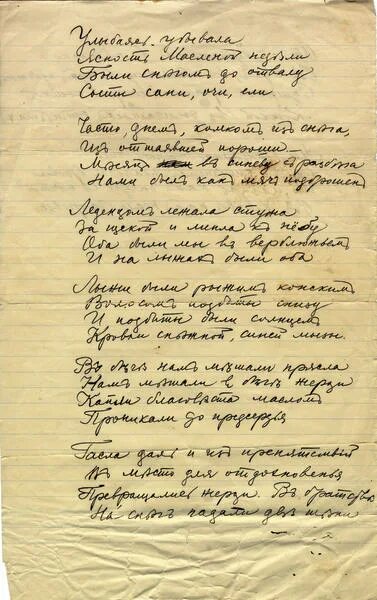 Улыбаясь, убывала
Ясность Масленой недѣли
Были снѣгомъ до отвалу
Сыты сани, очи, ели.
Часто, днемъ, комкомъ изъ снѣга,
Изъ оттаявшей пороши —
Мѣсяцъ въ синеву съ разбѣга
Нами былъ какъ мячъ подброшенъ
Леденцомъ лежала стужа
За щекой и липла къ нёбу
Оба были мы въ верблюжьемъ
И на лыжахъ были оба
Лыжи были рыжимъ конскимъ
Волосомъ подбиты снизу
И подбиты были солнцемъ
Кровли снѣжной, синей мызы.
Въ бѣгѣ намъ мѣшали прясла
Намъ мѣшали в бѣгѣ жерди
Капли благовѣста масломъ
Проникали до предсердья
Гасла даль и изъ препятствій
Въ мѣсто для отдохновенья
Превращались жерди. Въ братствѣ
На снѣгъ падали двѣ тѣни